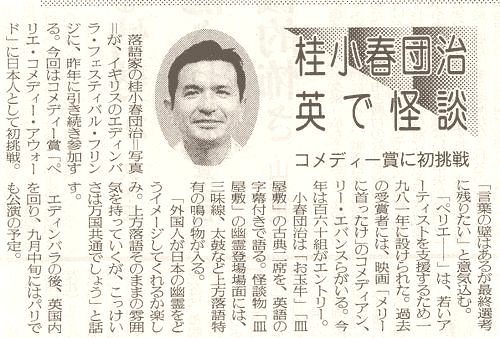 桂小春団治
英で怪談
コメディー賞に初挑戦
落語家の桂小春団治＝写真
＝が、イギリスのエディンバ
ラ・フェスティバル・フリン
ジに、昨年に引き続き参加す
る。今回はコメディー賞「ペ
リエ・コメディー・アウォー
ド」に日本人として初挑戦。
「言葉の壁はあるが最終選考
に残りたい」と意気込む。
「ペリエ―」は、若いア
ーティストを支援するため一
九八一年に設けられた。過去
の受賞者には、映画「メリー
に首ったけ」のコメディアン、
リー・エバンスらがいる。今
年は百六十組がエントリー。
小春団治は「お玉牛」「皿
屋敷」の古典二席を、英語の
字幕付きで語る。怪談物「皿
屋敷」の幽霊登場場面には、
三味線、太鼓など上方落語特
有の鳴り物が入る。
「外国人が日本の幽霊をど
うイメージしてくれるか楽し
み。上方落語そのままの雰囲
気を持っていくが、こっけい
さは万国共通でしょう」と話
す。
エディンバラの後、英国内
を回り、九月中旬にはパリで
も公演の予定。